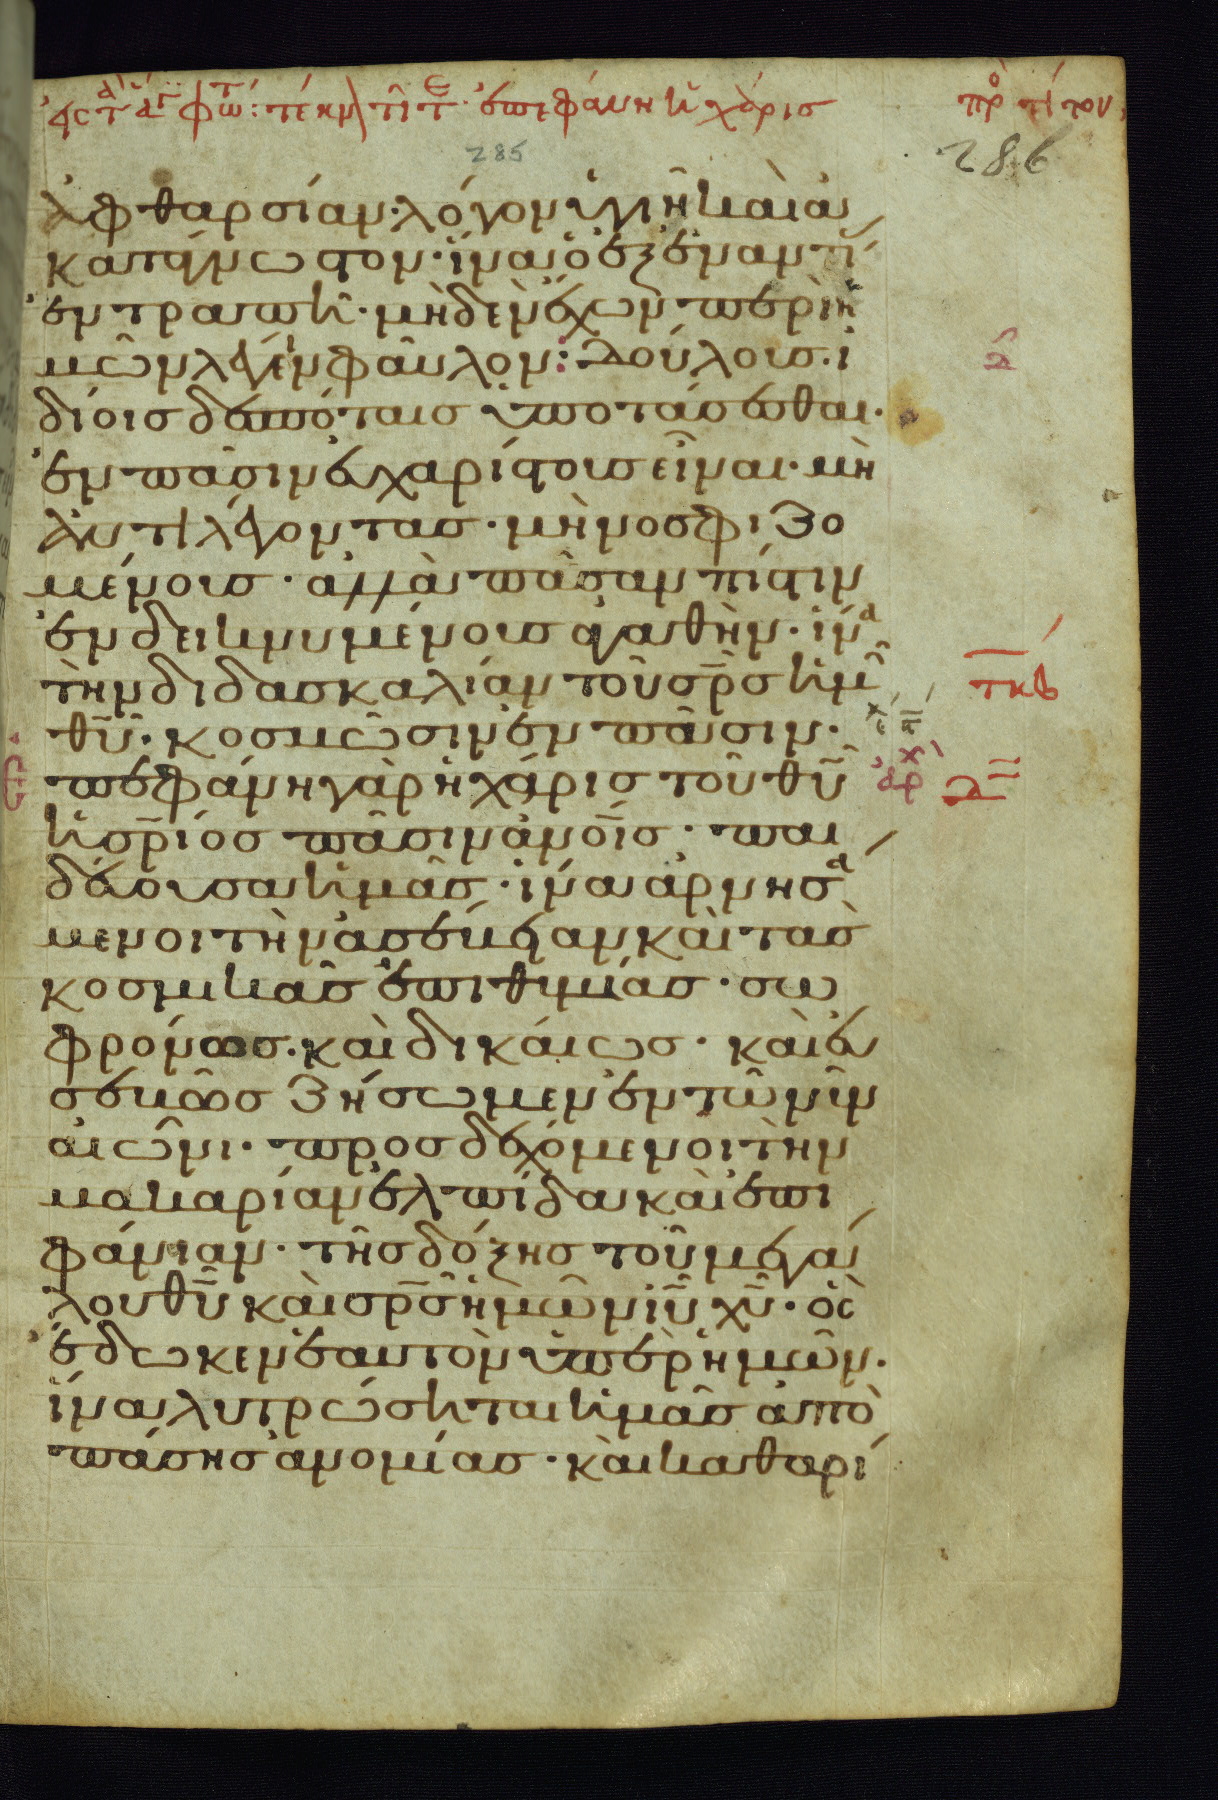 πρ τίτον
285
286
ἀφθαρσίαν· λόγον ὑγιῆ καὶ ἀ
κατάγνωστον· ἵνα ὁ ἐξ ἐναντί
ἐντραπῆ· μηδὲν ἔχων περὶ ἡ
μῶν λέγειν φαῦλον: Δούλοις ἰ
δίοις δεσπόταις ὑποτάσσεσθαι·
ἐν πᾶσιν εὐχαρίστοις εἶναι· μὴ
ἀντιλέγοντας· μὴ νοσφιζο
μένοις· ἀλλὰ πᾶσαν πίστιν
ἐνδεικνυμένοις ἀγαθὴν· ἵνα
τὴν διδασκαλίαν τοῦ σρς ἡμ
θυ· κοσμῶσιν ἐν πᾶσιν·
τκβ
πεφάνη γὰρ ἡ χάρις τοῦ θυ
ἡ σριος πᾶσιν ανοις· παι
δεύουσα ἡμᾶς· ἵνα ἀρνησα
μενοι τὴν ἀσέβειαν καὶ τὰς
κοσμικὰς ἐπιθυμίας· σω
φρόνως· καὶ δικαίως· καὶ εὐ
σεβῶς ζήσωμεν ἐν τῶ νῦν
αἰῶνι· προσδεχόμενοι τὴν
μακαρίαν ἐλπίδα καὶ ἐπι
φάνιαν· τῆς δόξης τοῦ μεγά
λου θυ καὶ σρς ἡμῶν ιυ χυ· ὃς
ἔδωκεν ἑαυτὸν ὑπὲρ ἡμῶν·
ἵνα λυτρώσηται ἡμᾶς ἀπὸ
πάσης ἀνομίας· καὶ καθαρί